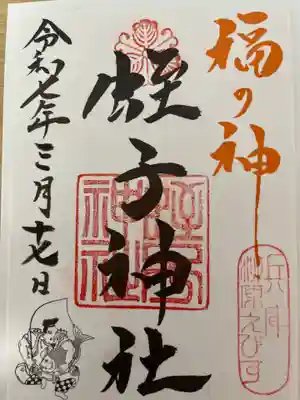 福の神
兵庫
柳原えびす
蛭子神社
令和七年三月十七日